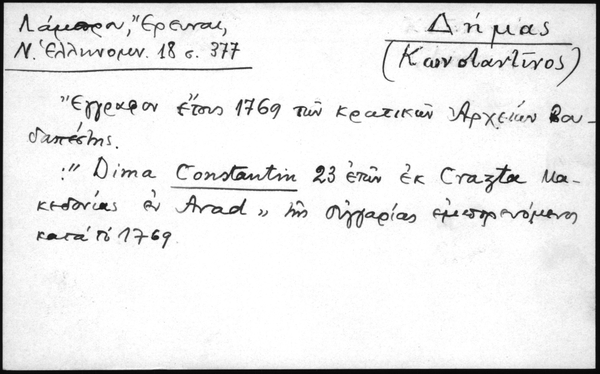 Λάμπρου, "Έρευναι,
Ν. Ἑλληνομν. 18 σ. 377
Δήμας
(Κωνσταντῖνος)
"Ἔγγραφον ἔτους 1769 τῶν κρατικῶν Ἀρχείων Βου-
δαπέστης.
:" Dima Constantin 23 ἐτῶν ἐκ Crazta Μα-
κεδονίας ἐν Arad " τῆς Οὑγγαρίας ἐμπορευόμενος
κατά τό 1769